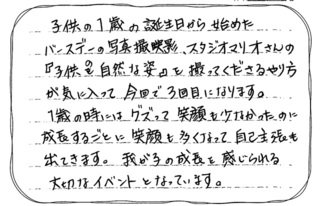 子供の1歳の誕生日から始めた
バースデーの写真撮影、スタジオマリオさんの
『子供の自然な姿』を撮ってくださるやり方
が気に入って今回で3回目になります。
1歳の時にはグズって笑顔も少なかったのに
成長するごとに笑顔も多くなって自己主張も
出てきます。我が子の成長を感じられる
大切なイベントとなっています。